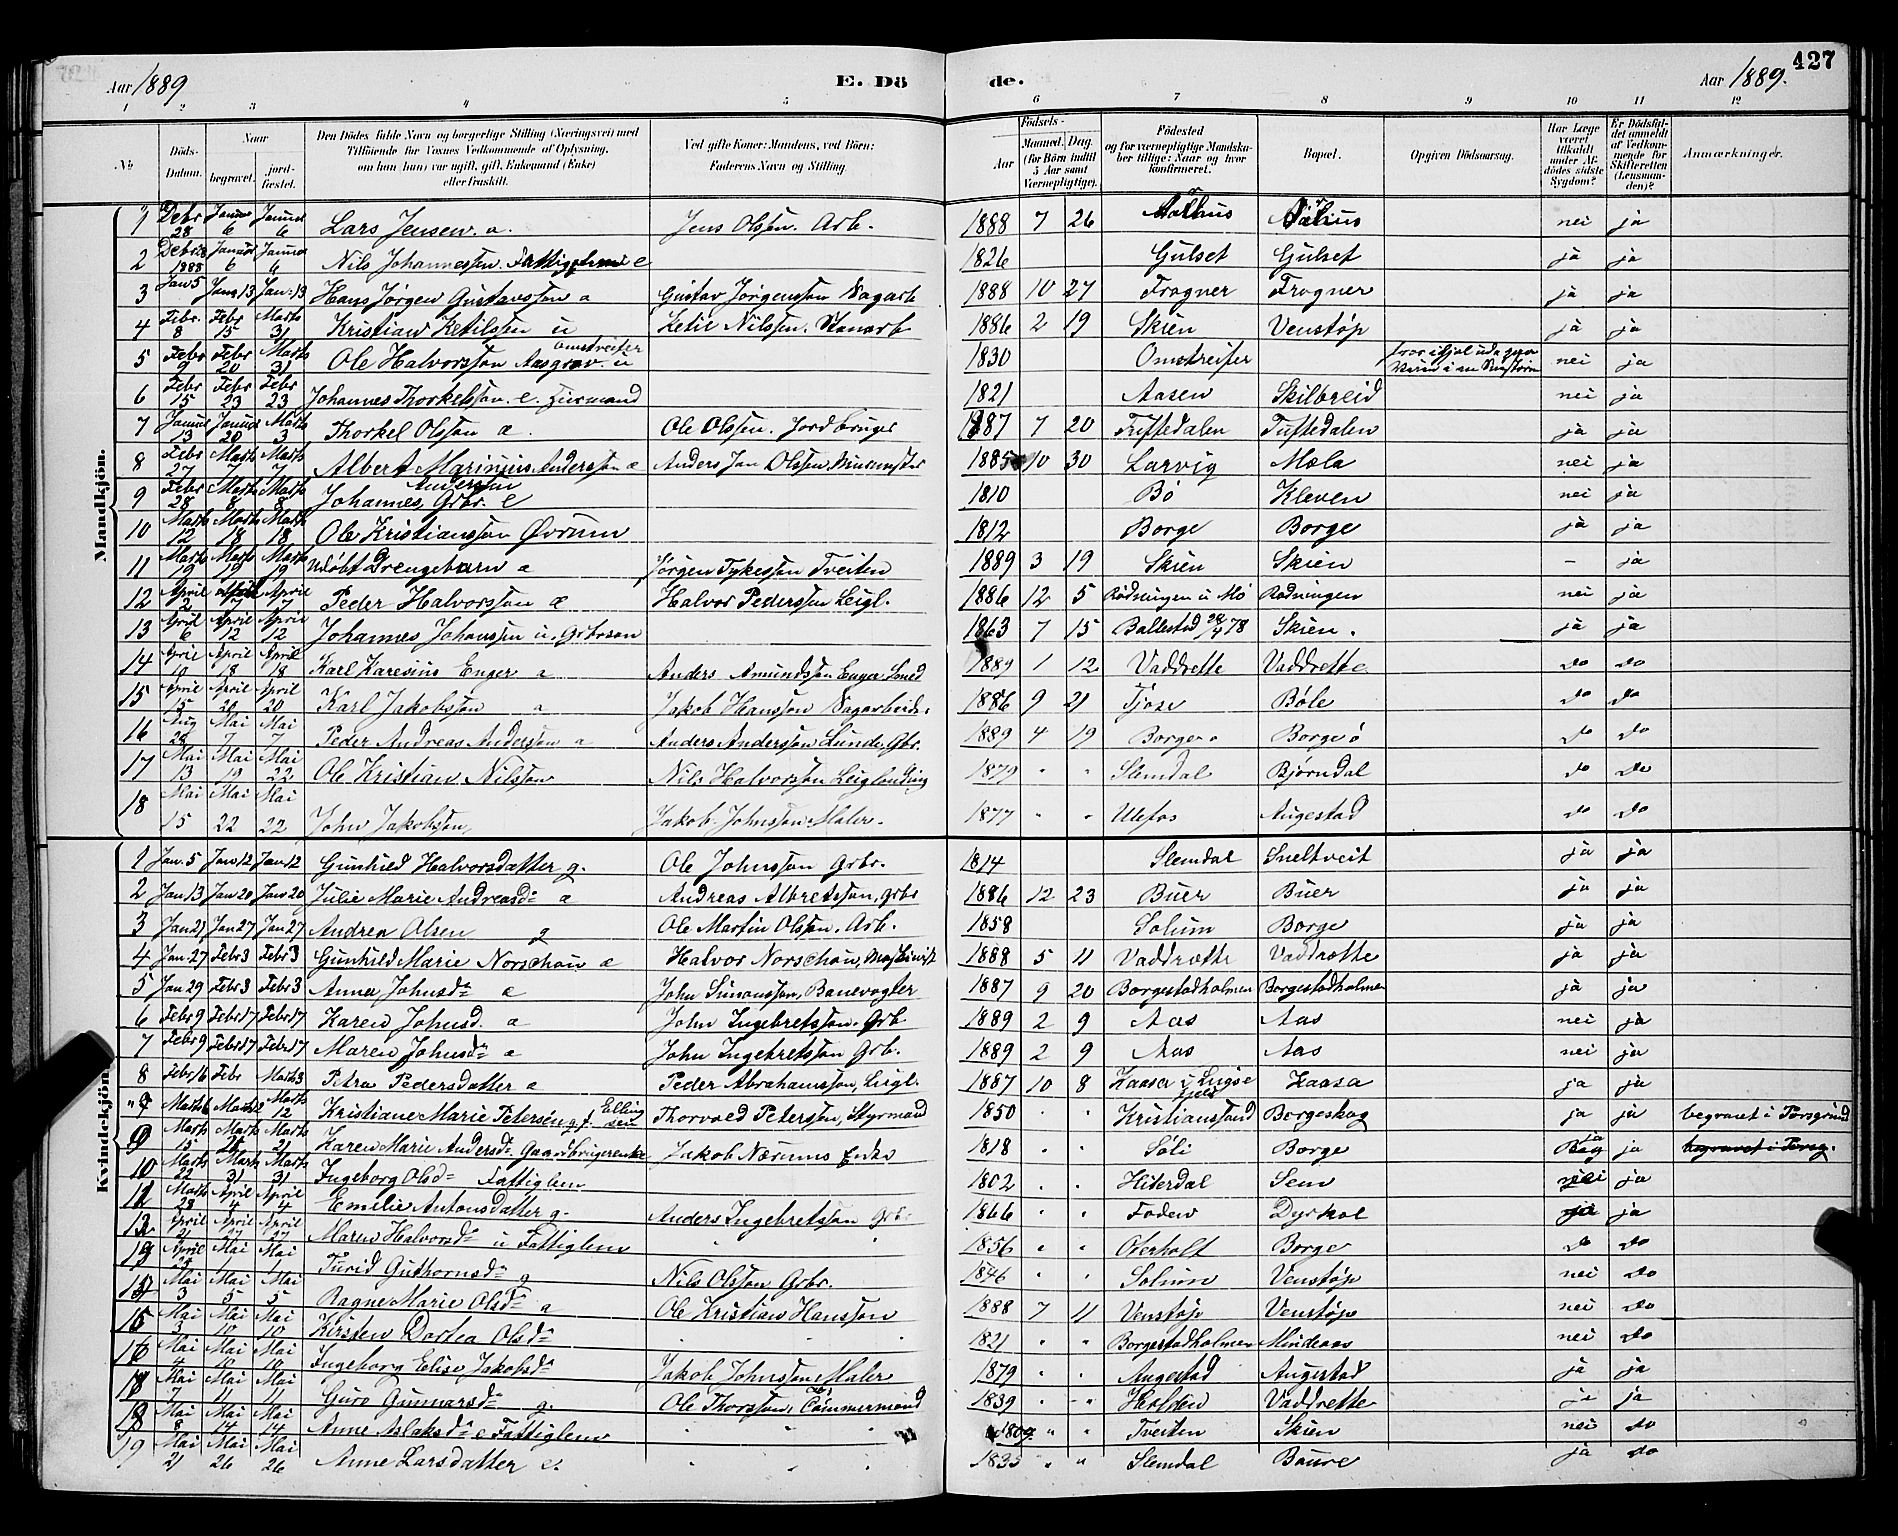 427
Aar 1889 E. Dö de. Aar 1889.
1 2 3 4 5 6 7 8 9 10 11 12
No. Döds-Datum. Naar begravet. jordfæstet. Den Dödes fulde Navn og borgerlige Stilling (Næringsvei) med Tilföiende for Voxnes Vedkommende af Oplysning, om han (hun) var ugift, gift, Enkemand (Enke) eller fraskilt. Ved gifte Koner: Mandens, ved Börn: Faderens Navn og Stilling. Födsels- Aar Maaned. Dag. (for Börn indtil 5 Aar samt Værnepligtige). Födested og for værnepligtige Mandskaber tillige: Naar og hvor konfirmeret. Bopæl. Opgiven Dödsaarsag. Har Læge været tilkaldt under Afdödes sidste Sygdom? Er Dödsfaldet anmeldt af Vedkommende for Skifteretten (Lensmanden)? Anmærkninger.
Mandkjön.
1 Debr 28 Januar 6 Januar 6 Lars Jensen. a. Jens Olsen. Arb. 1888 7 26 nei ja
2 Debr 28 1888 Januar 6 Januar 6 Nils Johannessen. e 1826 Gulset Gulset ja ja
3 Jan 5 Jan 13 Jan. 13 Hans Jørgen Gustavssøn a Gustav Jørgenssøn Sagarb 1888 10 27 Frogner Frogner ja ja
4 Febr. 8 Febr 15 Marts 31 Kristian Ketilssen u Ketil Nilssen. 1886 2 19 Skien Venstøp ja ja
5 Febr 9 Febr 20 Marts 31 Ole Halvorssøn Aasgrav. u omstreifer 1830 Omstreifer nei ja
6 Febr 15 Febr 23 Febr 23 Johannes Thorkelssøn. e. Huusmand 1821 Aasen Skilbreid nei ja
7 Januar 13 Januar 20 Marts 3 Thorkel Olssøn a. Ole Olssøn. Jordbruger 1887 7 20 Tuftedalen Tuftedalen ja ja
8 Febr 27 Marts 7 Marts 7 Albert Marinius Anderssøn a Anders Jan Olssøn, 1885 10 30 Larvig Mæla nei ja
9 Febr 28 Marts 8 Marts 8 Johannes Anderssøn Grbr. e 1810 Bø Kleven nei ja
10 Marts 12 Marts 18 Marts 18 Ole Kristianssøn Øvrum 1812 Borge Borge ja ja
11 Marts 19 Marts 19 Marts 19 Udøbt Drengebarn a Jørgen Tykessøn Tveiten 1889 3 19 Skien Skien - ja
12 April 2 April 7 April 7 Peder Halvorssøn a Halvor Pederssøn Leigl. 1886 12 5 Rødningen i Mo Rødningen nei ja
13 April 6 April 12 April 12 Johannes Johanssøn u. Grbrsøn 1863 7 15 Ballestad 28/4 78 Skien. ja ja
14 April 10 April 18 April 18 Karl Karesius Enger a Anders Amundssøn Enger Smed 1889 1 12 Vaddrette Vaddrette do do
15 April 15 April 20 April 20 Karl Jakobssøn a Jakob Hanssøn Sagarbeider 1886 9 21 Tjose Bøle do do
16 Aug 28 Mai 7 Mai 7 Peder Andreas Anderssøn a Anders Anderssøn Lunde, Gbr. 1889 4 19 Borgeø Borgeø do do
17 Mai 13 Mai 19 Mai 22 Ole Kristian Nilssøn Nils Halvorssøn Leiglending 1879 " " Slemdal Bjørndal do do
18 Mai 15 Mai 22 Mai 22 John Jakobssøn, Jakob Johnssøn Maler. 1877 " " Ulefos Augestad do do
Kvindekjön.
1 Jan. 5 Jan 12 Jan. 12 Gunhild Halvorsdatter g. Ole Johnssøn Grbr. 1814 Slemdal Sneltveit ja ja
2 Jan 13 Jan 20 Jan 20 Julie Marie Andreasd. a Andreas Albretssøn, Grbr 1886 12 23 Buer Buer ja ja
3 Jan 21 Jan 27 Jan 27 Andrea Olsen g Ole Martin Olssøn. Arb. 1858 Solum Borge ja ja
4 Jan. 27 Febr 3 Febr 3 Gunhild Marie Norschau a Halvor Norschau, Maskinist 1888 5 11 Vaddrætte Vaddrætte ja ja
5 Jan 29 Febr 3 Febr 3 Anna Johnsd. a John Simonssøn, Banevogter 1887 9 20 Borgestadholmen Borgestadholmen ja ja
6 Febr 9 Febr 17 Febr 17 Karen Johnsd. a John Ingebretssøn. Grb 1889 2 9 Aas Aas nei ja
7 Febr 9 Febr 17 Febr 17 Maren Johnsd. a John Ingebretssøn Grb. 1889 2 9 Aas Aas nei ja
8 Febr 16 Febr Marts 3 Petra Pedersdatter a Peder Abrahamssøn, Leigl. 1887 10 8 Kaasa i Kaasa ja ja
Marts 6 Marts 12 Marts 12 Kristiane Marie Petersen g. f. Ellingsen Thorvald Petersen, Styrmand 1850 " " Kristianssand Borgeskog ja ja begravet i Porsgrund
9 Marts 15 Marts 21 Marts 21 Karen Marie Andersd. Gaardbrugerenke Jakob Nærums Enke 1818 " " Søli Borge ja ja begravet i Porsg.
10 Marts 22 Marts 31 Marts 31 Ingeborg Olsd. Fattiglem 1802 " " Hiterdal Sem nei ja
11 Marts 28 April 4 April 4 Emilie Antonsdatter g. Anders Ingebretssøn Grbr 1866 " " Foden Dyrkol ja ja
12 April 21 April 27 April 27 Maren Halvorsd. u Fattiglem " 1856 " " Oterholt Borge do do
13 April Mai 1 Mai 1 Turid Guthormsd. g Nils Olssøn Grbr. 1846 " " Solum Venstøp nei do
14 Mai 3 Mai 5 Mai 5 Ragne Marie Olsd. a Ole Kristian Hanssøn 1888 7 11 Venstøp Venstøp nei do
15 Mai 3 Mai 10 Mai 10 Kirsten Dortea Olsd. " " 1821 " " Borgestadholmen Mindeaas nei do
16 Mai 4 Mai 10 Mai 10 Ingeborg Elise Jakobsd. Jakob Johnssøn Maler 1879 " " Augestad Augestad ja ja
17 Mai 7 Mai 11 Mai 11 Guro Gunnarsd. g. Ole Thorssøn, Tømmermand 1839 " " Holden Vaddrette ja ja
18 Mai 8 Mai 14 Mai 14 Anne Aslaksd. e Fattiglem " " 1809 " " Tveiten Skien nei do
19 Mai 21 Mai 26 Mai 26 Anne Larsdatter e. " " " 1835 " " Slemdal ja do